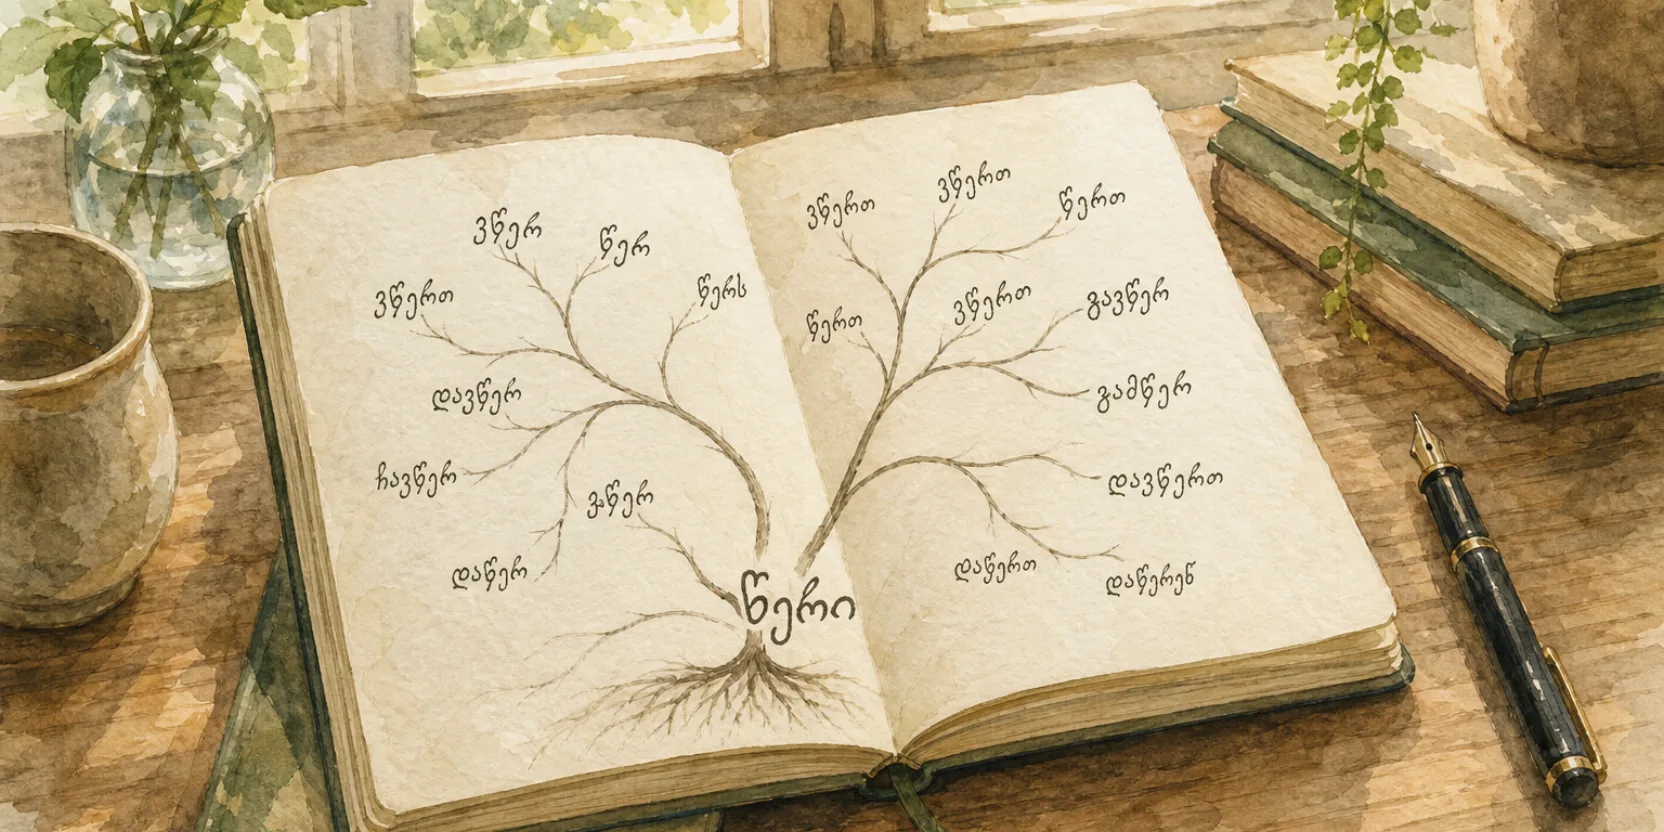 ვწერ
წერ
წერს
ვწერთ
დავწერ
ჩავწერ
დაწერ
წერი
ვწერთ
ვწერთ
წერთ
წერთ
ვწერთ
გავწერ
გამწერ
დავწერთ
დაწერენ